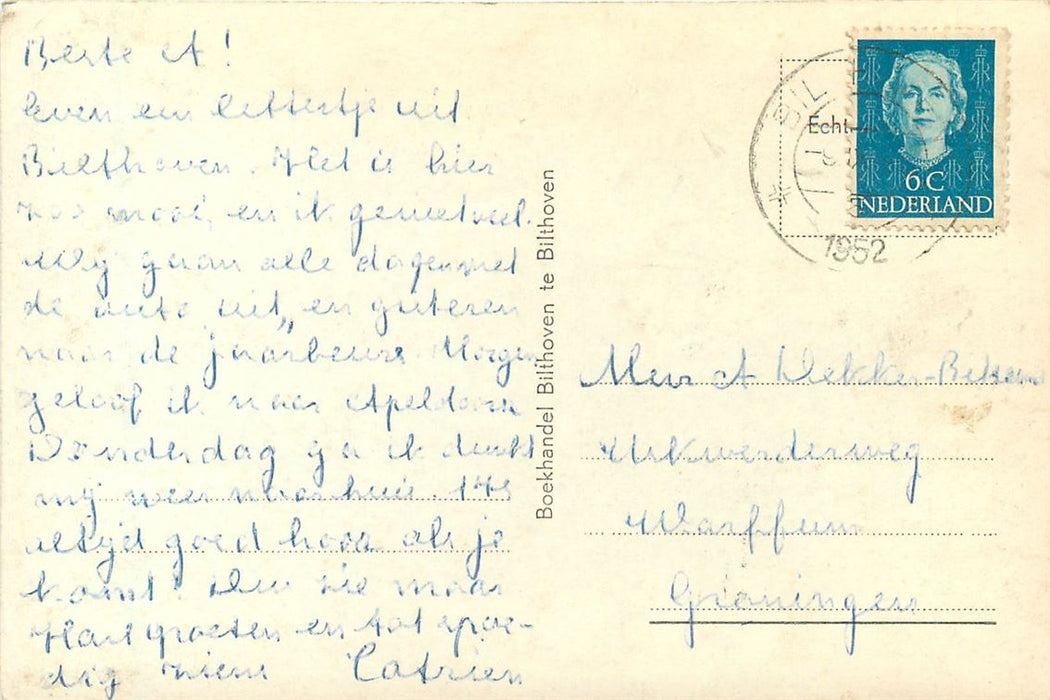 Beste A!
Even een lettertje uit
Bilthoven. Het is hier
zoo mooi, en ik geniet veel.
Wij gaan alle dagen met
de auto uit, en gisteren
naar de jaarbeurs. Morgen
geloof ik naar Apeldoorn
Donderdag ga ik denkt
mij weer naar huis
altijd goed hoor als je
komt! Dus zie maar
Hart groeten en tot spoe-
dig ziens Catrien
Boekhandel Bilthoven te Bilthoven
Echt
BIL
1952
6C
NEDERLAND
Mevr A Dekker-
Warffum
Groningen